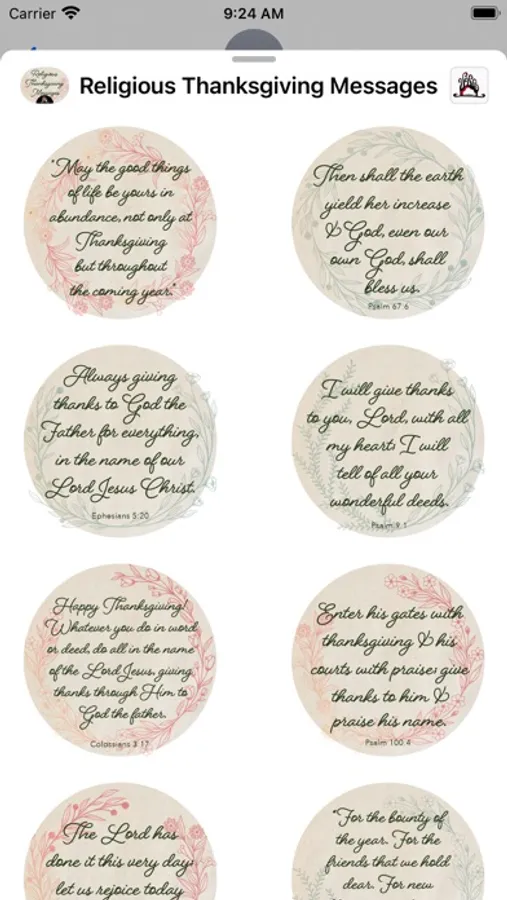 Carrier 9:24 AM
Religious Thanksgiving Messages
Religious
Thanksgiving
Messages
"May the good things
of life be yours in
abundance, not only at
Thanksgiving
but throughout
the coming year."
Then shall the earth
yield her increase
& God, even our
own God, shall
bless us.
Psalm 67:6
Always giving
thanks to God the
Father for everything,
in the name of our
Lord Jesus Christ.
Ephesians 5:20
I will give thanks
to you, Lord, with all
my heart; I will
tell of all your
wonderful deeds.
Psalm 9:1
Happy Thanksgiving!
Whatever you do in word
or deed, do all in the name
of the Lord Jesus, giving
thanks through Him to
God the father.
Colossians 3:17
Enter his gates with
thanksgiving & his
courts with praise; give
thanks to him &
praise his name.
Psalm 100:4
The Lord has
done it this very day;
let us rejoice today
"For the bounty of
the year. For the
friends that we hold
dear. For new